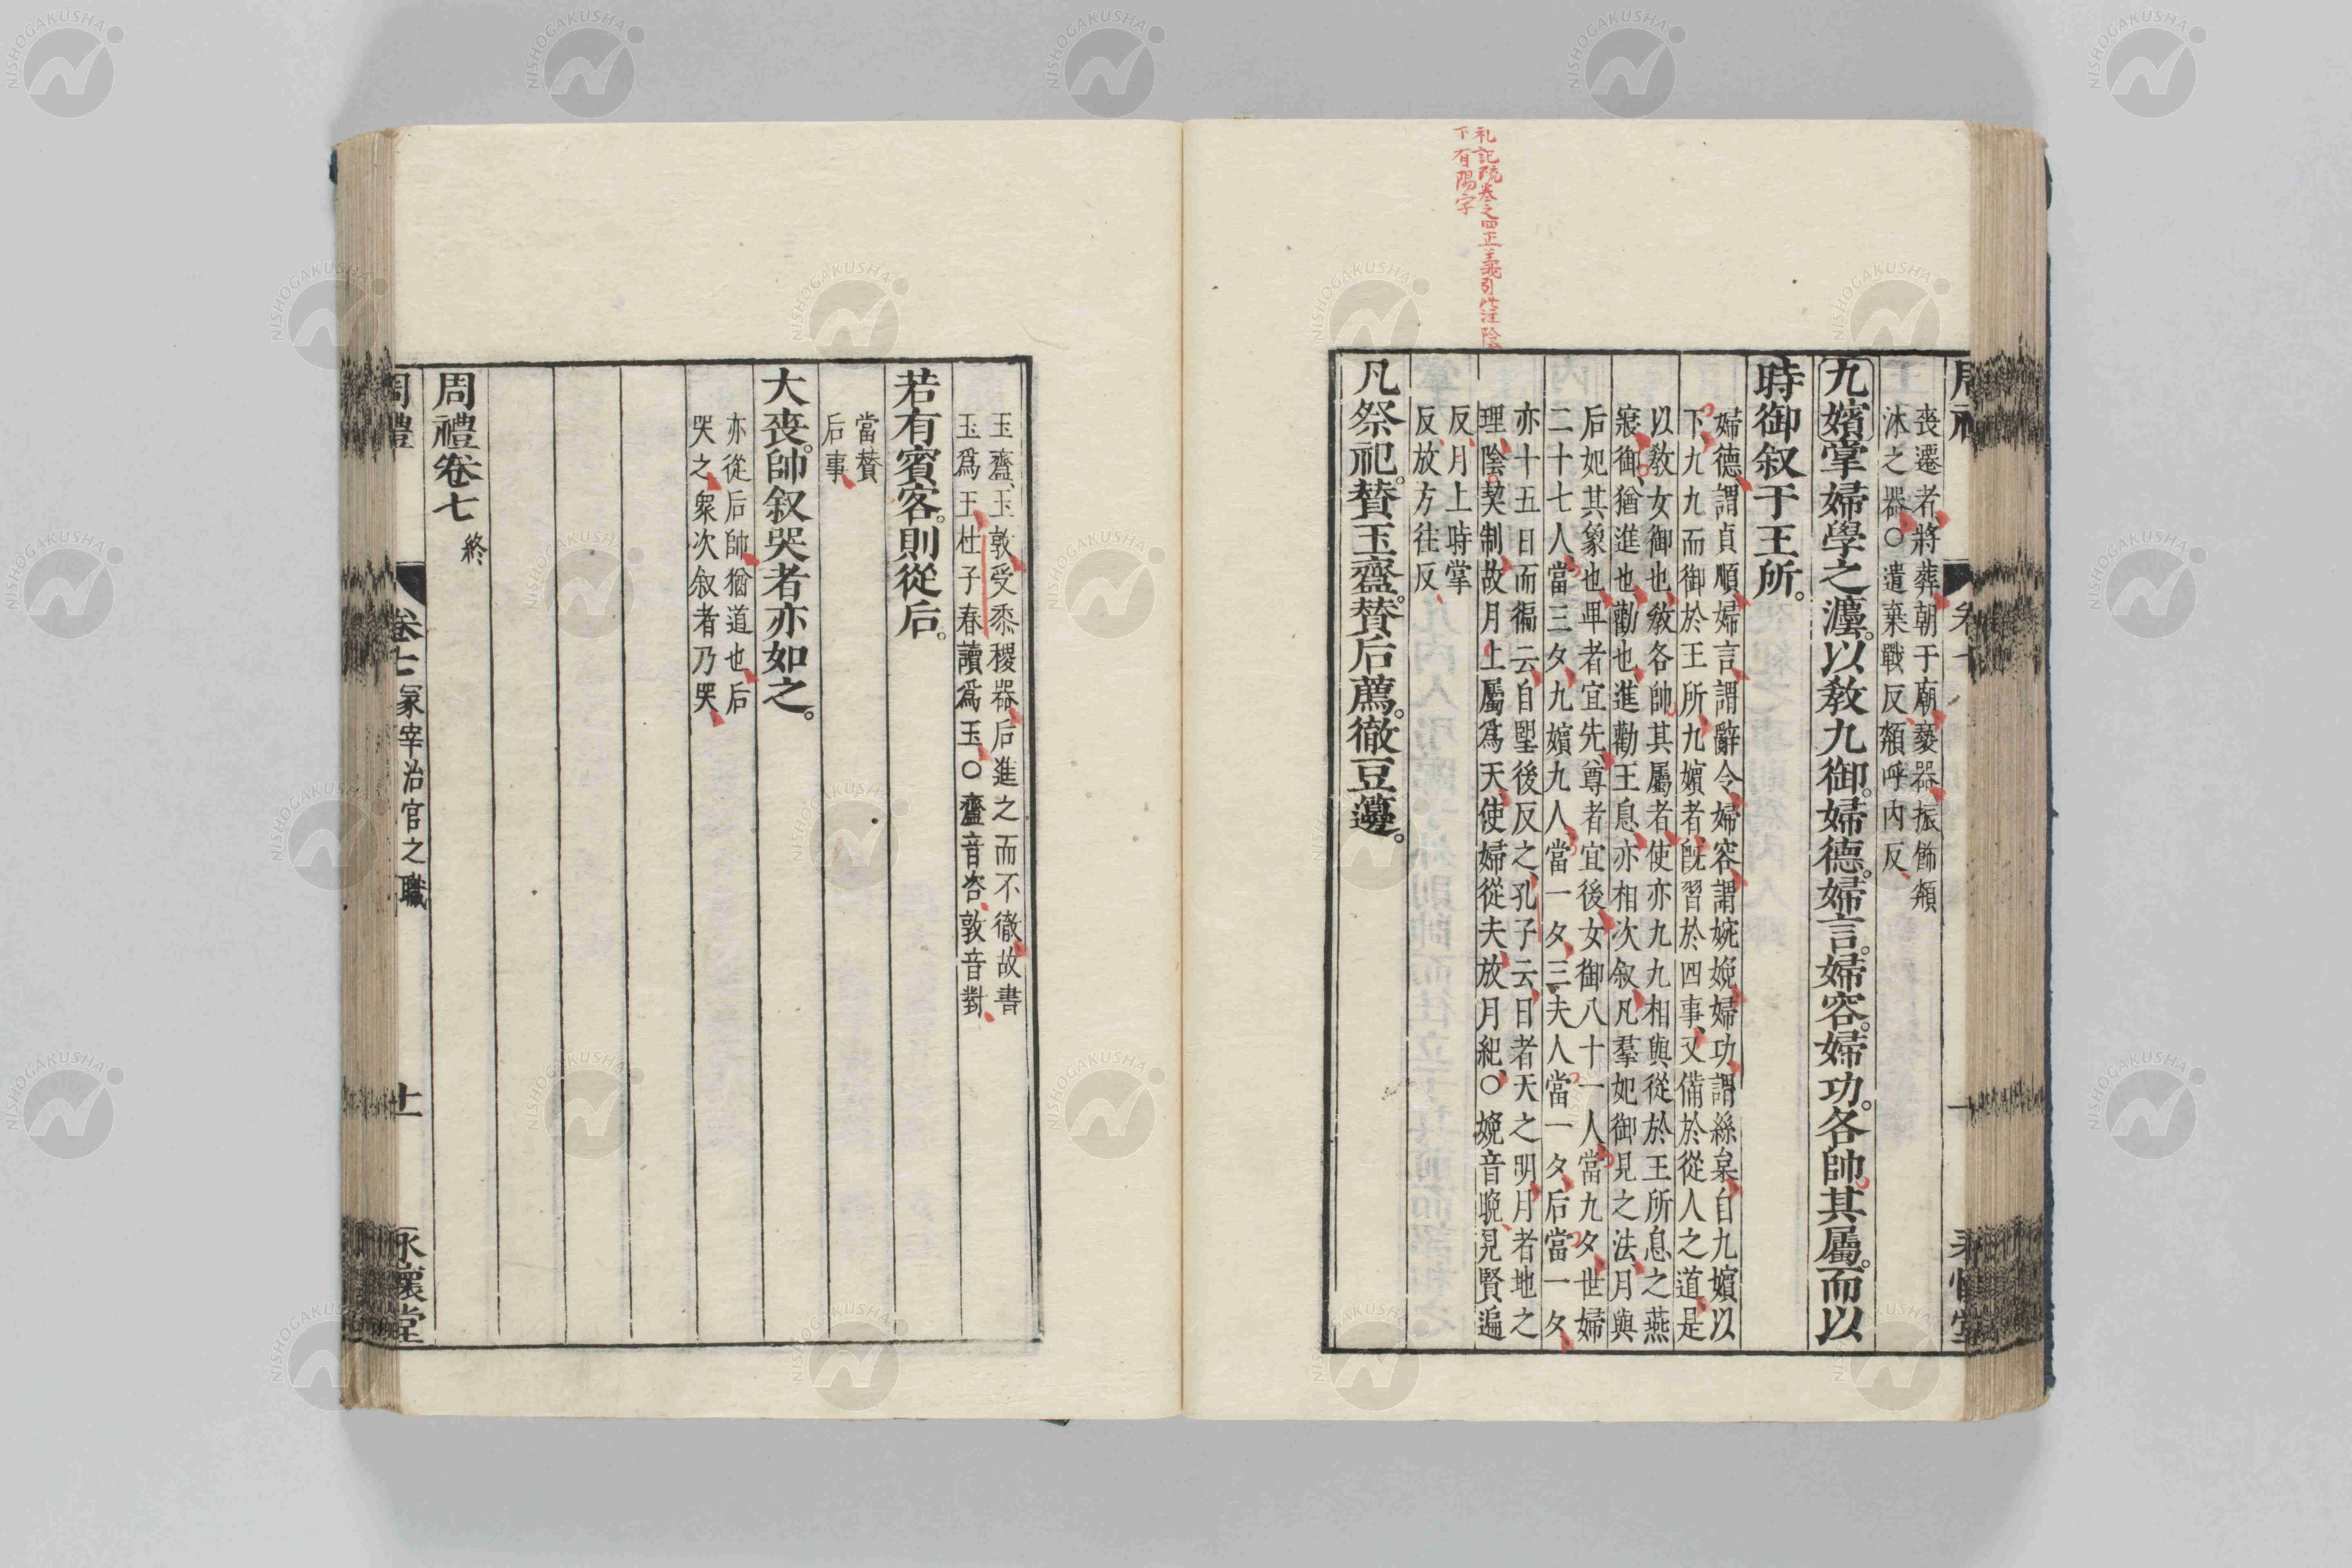 礼記疏卷之四正義引此注陰
下有陽字
喪遷者將葬朝于廟褻器振飾頮
沐之器○遣棄戰反頮呼內反
九嬪掌婦學之灋。以敎九御。婦德。婦言。婦容。婦功。各帥其屬。而以
時御叙于王所。
婦德謂貞順婦言謂辭令婦容謂婉娩婦功謂絲枲自九嬪以
下九九而御於王所九嬪者旣習於四事又備於從人之道是
以敎女御也敎各帥其屬者使亦九九相與從於王所息之燕
寢御猶進也勸也進勸王息亦相次叙凡羣妃御見之法月與
后妃其象也卑者宜先尊者宜後女御八十一人當九夕世婦
二十七人當三夕九嬪九人當一夕三夫人當一夕后當一夕
亦十五日而徧云自朢後反之孔子云日者天之明月者地之
理陰契制故月上屬爲天使婦從夫放月紀○娩音晚見賢遍
反月上時掌
反放方往反
凡祭祀。贊玉齍。贊后薦。徹豆籩。
玉齍、玉敦受黍稷器后進之而不徹故書
玉爲王杜子春讀爲玉○齍音咨敦音對
若有賓客。則從后。
當贊
后事
大喪。帥叙哭者亦如之。
亦從后帥猶道也后
哭之衆次叙者乃哭
周禮卷七 終
周禮 卷七 冢宰治官之職 十一 永懷堂
NISHOGAKUSHA